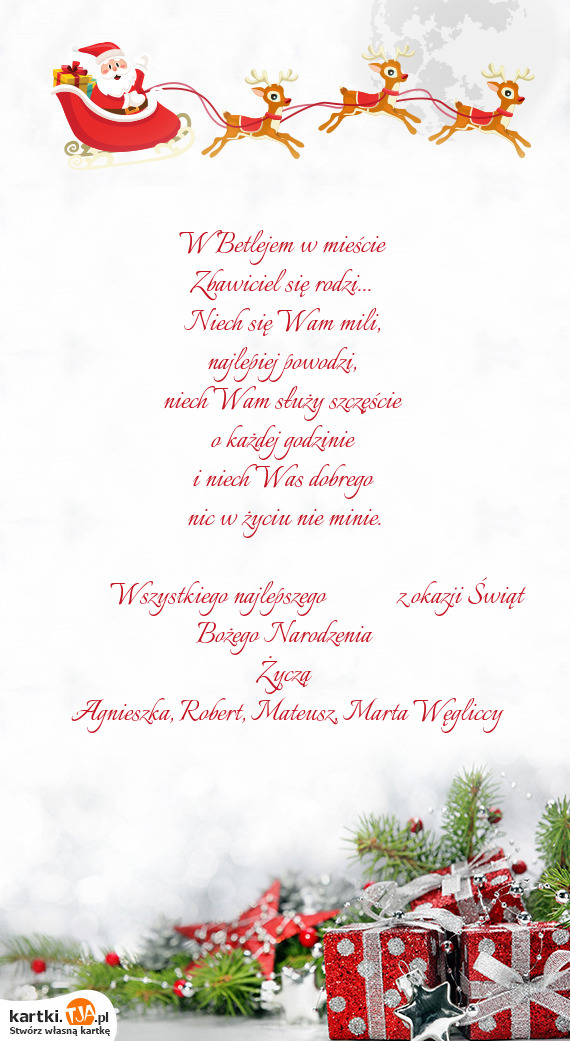 W Betlejem w mieście
Zbawiciel się rodzi...
Niech się Wam mili,
najlepiej powodzi,
niech Wam służy szczęście
o każdej godzinie
i niech Was dobrego
nic w życiu nie minie.
Wszystkiego najlepszego z okazji Świąt
Bożego Narodzenia
Życzą
Agnieszka, Robert, Mateusz, Marta Węgliccy
kartki.TJA.pl
Stwórz własną kartkę